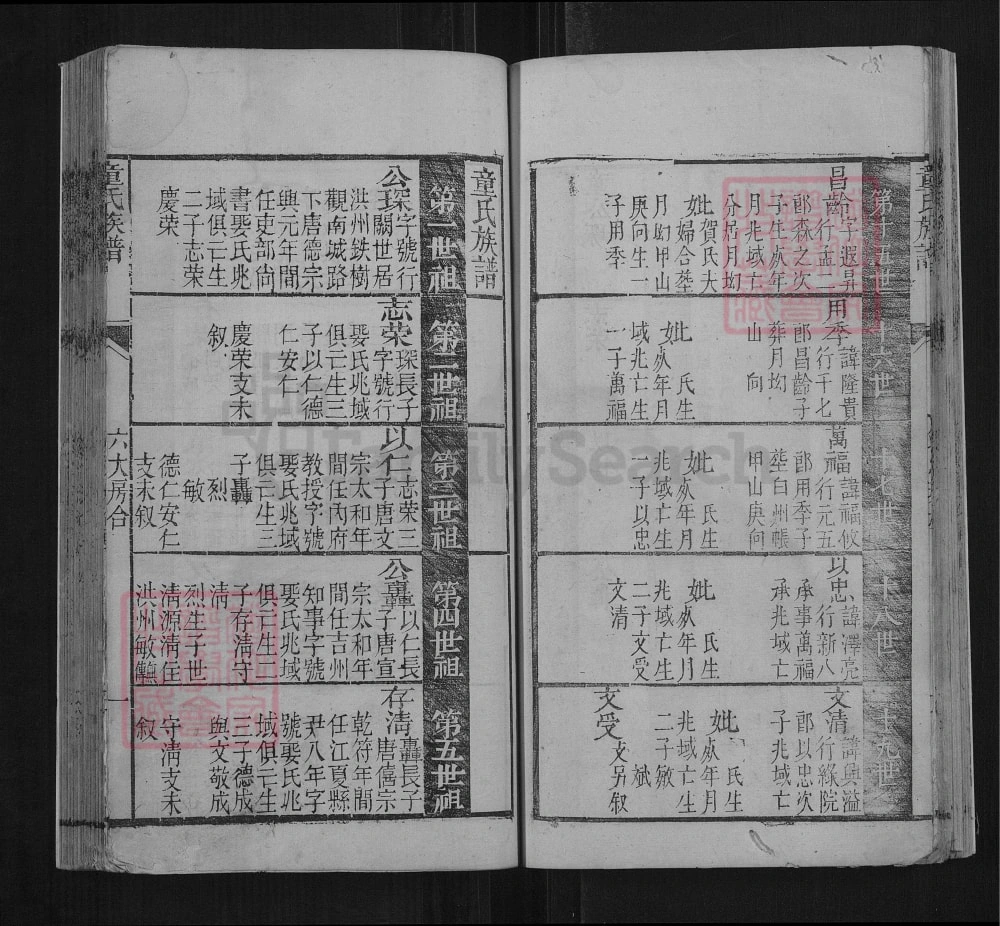 童氏族譜
第十五世
昌齡字遐昇
行孟一
郎森之次
子生歿年
月兆域亡
分居月㘭
妣賀氏大
妣婦合塟
月㘭甲山
庚向生二
子用季
十六世
用季諱隆貴
行千七
郎昌齡子
葬月㘭
山向
妣氏生
歿年月
域兆亡生
一子萬福
十七世
萬福諱福攸
行元五
郎用季子
塟白州帳
甲山庚向
妣氏生
歿年月
兆域亡生
一子以忠
十八世
以忠諱澤亮
行新八
承事萬福
承兆域亡
妣氏生
歿年月
兆域亡生
二子文受
文清
十九世
文清諱興溢
行綠院
郎以忠次
子兆域亡
妣氏生
歿年月
兆域亡生
二子敏
斌
文受
文另叙
童氏族譜
第一世祖
公琛字號行
闕世居
洪州鉄樹
觀南城路
下唐德宗
興元年間
任吏部尚
書娶氏兆
域俱亡生
二子志荣
慶荣
第二世祖
志荣琛長子
字號行
娶氏兆域
俱亡生三
子以仁德
仁安仁
慶荣支未
叙
第三世祖
以仁志荣三
子唐文
宗太和年
間任内府
教授字號
娶氏兆域
俱亡生三
子轟
烈
敏
德仁安仁
支未叙
第四世祖
公轟以仁長
子唐宣
宗太和年
間任吉州
知事字號
娶氏兆域
俱亡生二
子存淸守
淸
烈生子世
清源淸住
洪州敏
第五世祖
存淸轟長子
唐僖宗
乾符年間
任江夏縣
尹八年字
號娶氏兆
域俱亡生
三子德成
與文敬成
守淸支未
叙
童氏族譜
六大房合
一
FamilySearch